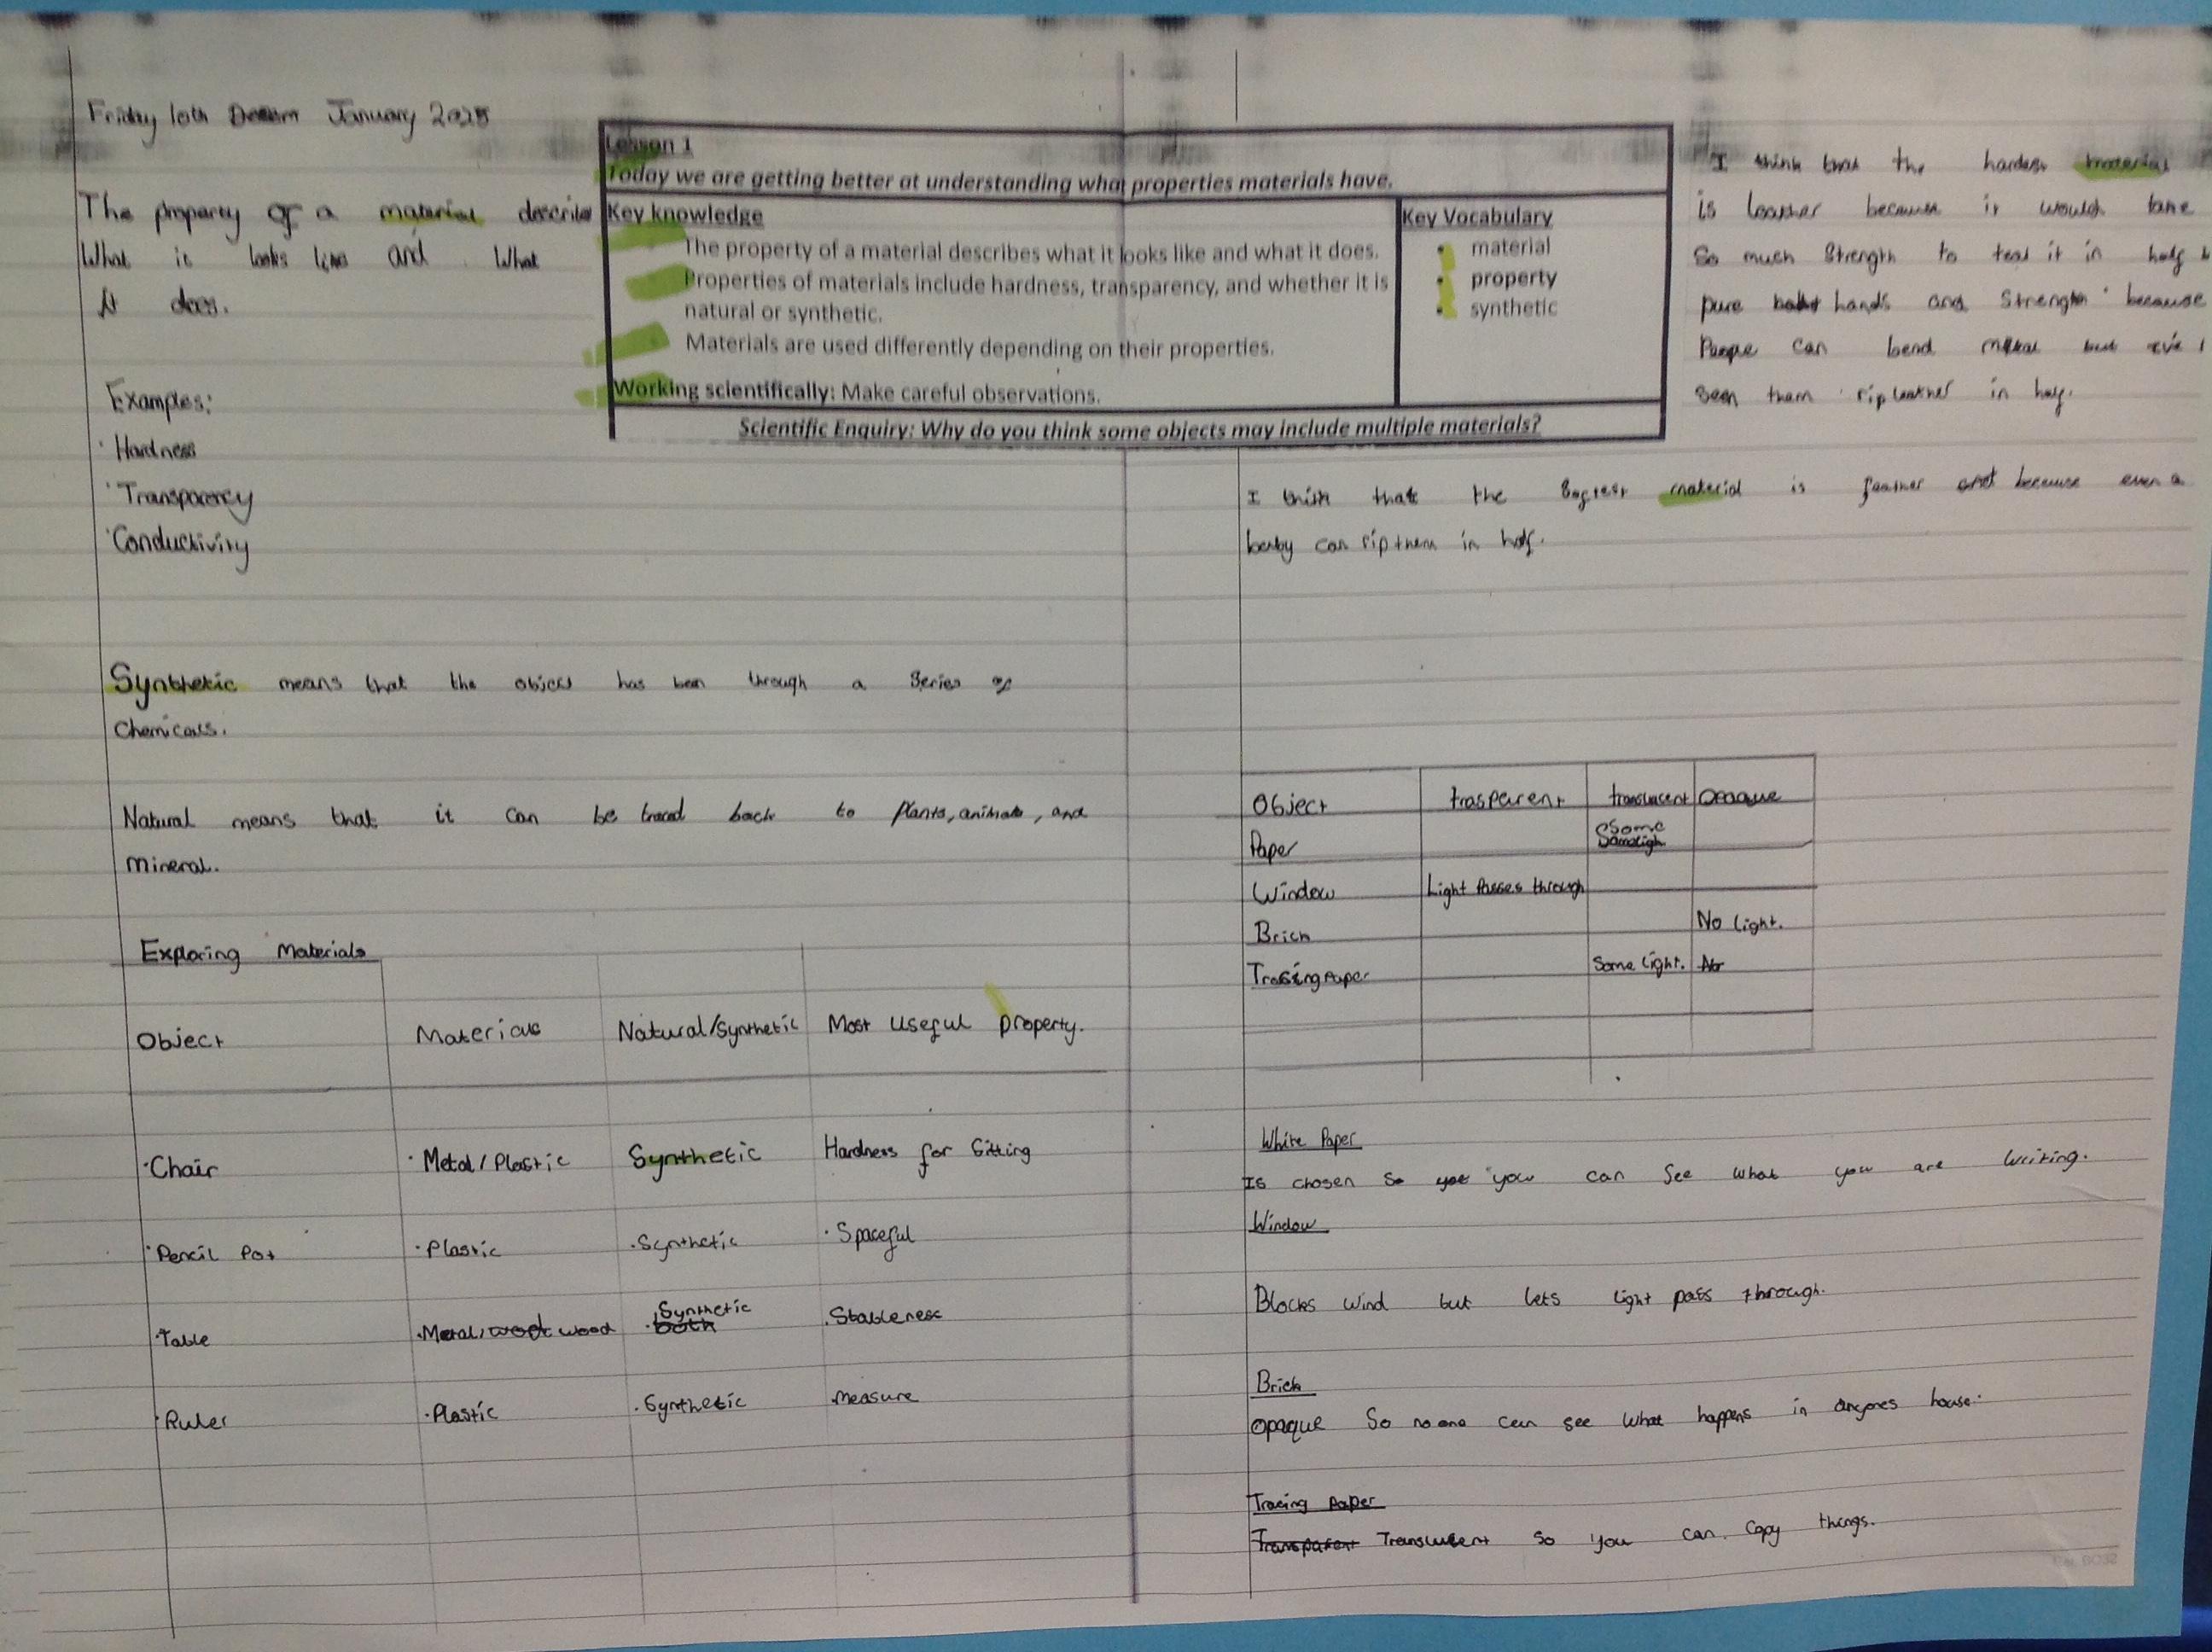 Friday 10th January 2025
The property of a material describe
What it looks like and What
it does.
Examples:
· Hardness
· Transparency
· Conductivity
Synthetic means that the object has been through a Series of
Chemicals.
Natural means that it can be traced back to plants, animals, and
mineral.
Exploring Materials
Object Materials Natural/Synthetic Most Useful property.
· Chair · Metal / Plastic Synthetic Hardness for Sitting
· Pencil Pot · Plastic · Synthetic · Spaceful
· Table · Metal, wood wood · both Synthetic · Stableness
· Ruler · Plastic · Synthetic · measure
Lesson 1
Today we are getting better at understanding what properties materials have.
Key knowledge
The property of a material describes what it looks like and what it does.
Properties of materials include hardness, transparency, and whether it is
natural or synthetic.
Materials are used differently depending on their properties.
Working scientifically: Make careful observations.
Key Vocabulary
• material
• property
• synthetic
Scientific Enquiry: Why do you think some objects may include multiple materials?
I think that the hardest material
is leather because it would take
So much Strength to tear it in half
pure hands and Strength because
People can bend metal but
seen them rip leather in half.
I think that the material is feather because even a
baby can rip them in half.
Object trasparent translucent Opaque
Paper Some
Window Light Passes through
Brick No light.
Tracing Paper Some light. No
White Paper
Is chosen so you can See what you are writing.
Window
Blocks wind but lets light pass through.
Brick
Opaque So no one can see what happens in anyones house.
Tracing paper
Transparent Translucent so you can copy things.